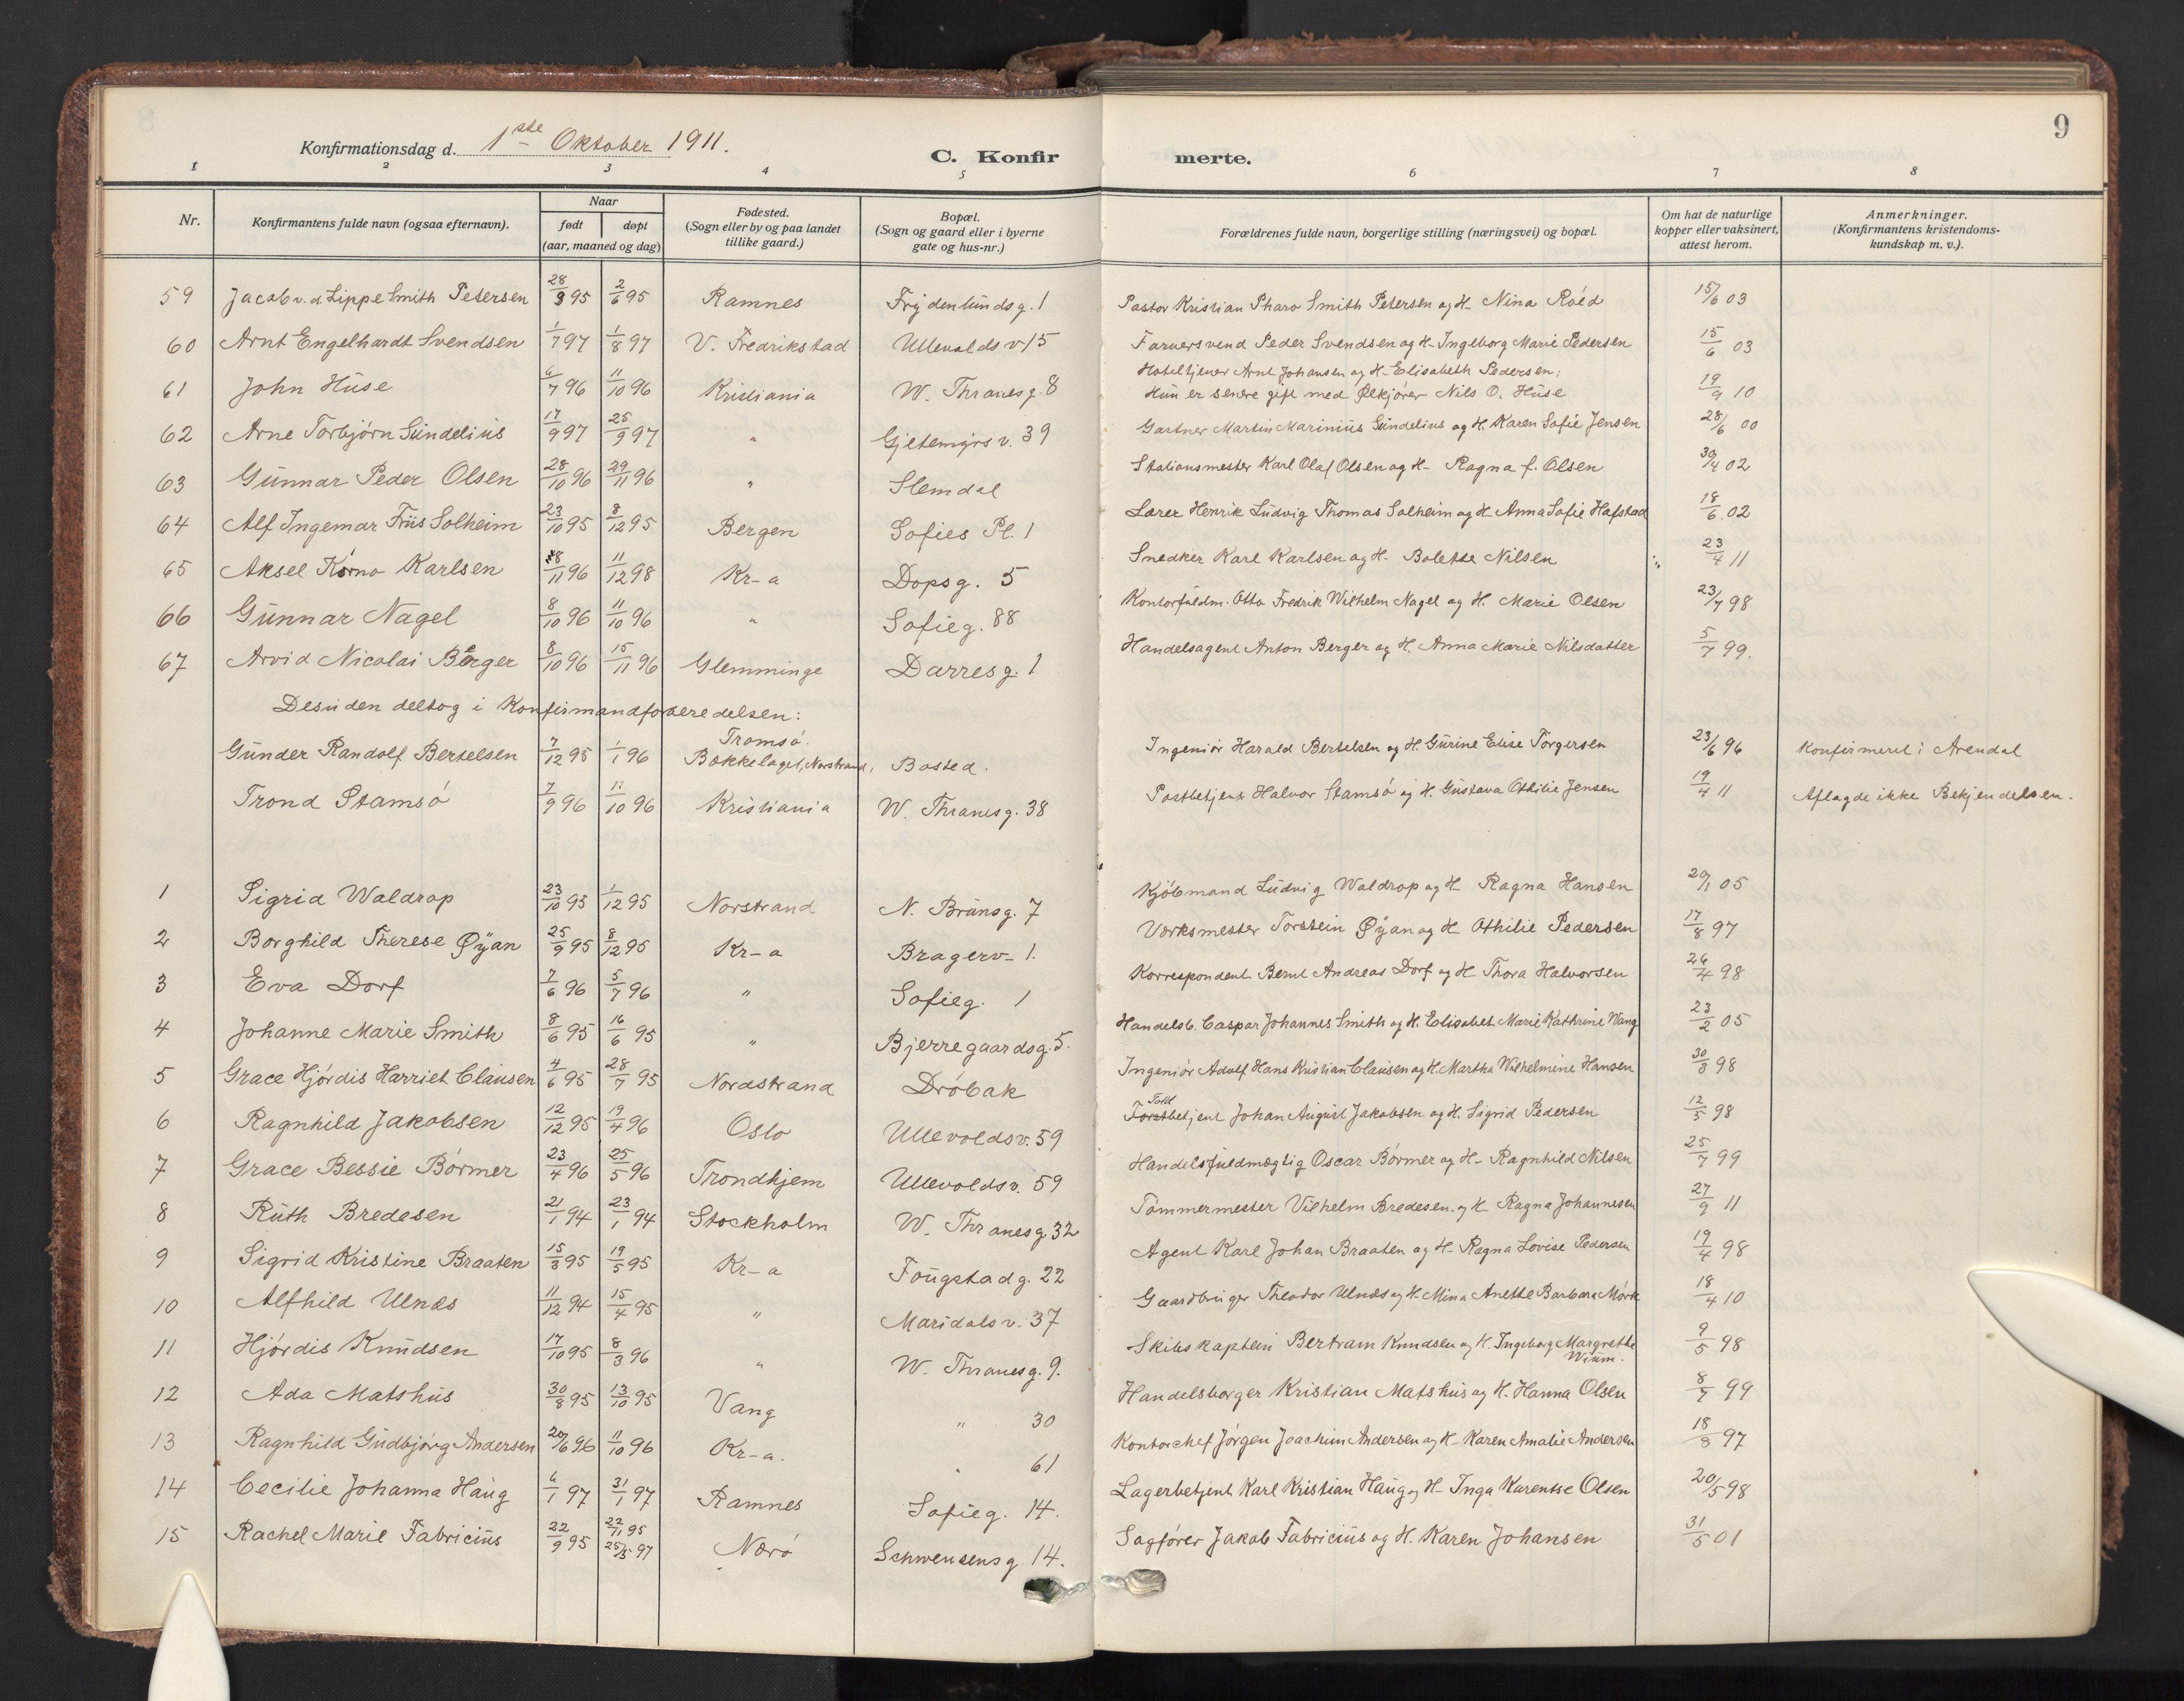 9
Konfirmationsdag d. 1ste Oktober 1911.
C. Konfirmerte.
1 2 3 4 5 6 7 8
Nr. | Konfirmantens fulde navn (ogsaa efternavn). | Naar født døpt (aar, maaned og dag) | Fødested. (Sogn eller by og paa landet tillike gaard.) | Bopæl. (Sogn og gaard eller i byerne gate og hus-nr.) | Forældrenes fulde navn, borgerlige stilling (næringsvei) og bopæl. | Om hat de naturlige kopper eller vaksinert, attest herom. | Anmerkninger. (Konfirmantens kristendomskundskap m. v.).
59 Jacob v. d Lippe Smith Petersen 28/3 95 2/6 95 Ramnes Frydenlundsg. 1 Pastor Kristian Pharo Smith Petersen og H. Nina Roéd 15/6 03
60 Arnt Engelhardt Svendsen 1/7 97 1/8 97 V. Fredrikstad Ullevoldsv 15 Farversvend Peder Svendsen og H. Ingeborg Marie Pedersen 15/6 03
61 John Huse 6/7 96 11/10 96 Kristiania W. Thranesg. 8 Hoteltjener Arnt Johansen og H. Elisabeth Pedersen;
Hun er senere gift med Ølkjører Nils O. Huse 19/9 10
62 Arne Torbjørn Sundelius 17/9 97 25/9 97 " Gjetemyrsv. 39 Gartner Martin Marinius Sundelius og H. Karen Sofie Jensen 28/6 00
63 Gunnar Peder Olsen 28/10 96 29/11 96 " Slemdal Stationsmester Karl Olaf Olsen og H. Ragna f. Olsen 30/4 02
64 Alf Ingemar Friis Solheim 23/10 95 8/12 95 Bergen Sofies Pl. 1 Lærer Henrik Ludvig Thomas Solheim og H. Anna Sofie Hafstad 18/6 02
65 Aksel Karlsen 11 96 11/12 98 Kr-a Dopsg. 5 Snedker Karl Karlsen og H. Bolette Nilsen 23/4 11
66 Gunnar Nagel 8/10 96 11/10 96 " Sofieg. 88 Kontorfuldm. Otto Fredrik Wilhelm Nagel og H. Marie Olsen 23/7 98
67 Arvid Nicolai Berger 8/10 96 15/11 96 Glemminge Darresg. 1 Handelsagent Anton Berger og H. Anna Marie Nilsdatter 5/7 99.
Desuden deltog i Konfirmandforberedelsen:
Gunder Randolf Bertelsen 7/12 95 1/1 96 Tromsö. Bækkelaget, Norstrand, Bosted. Ingeniør Harald Bertelsen og H. Gurine Elise Torgersen 23/6 96 Konfirmert i Arendal
Trond Stamsö 7/9 96 11/10 96 Kristiania W. Thranesg. 38 Postbetjent Halvor Stamsö og H. Gustava Othilie Jensen 19/4 11 Aflagde ikke Bekjendelsen.
1 Sigrid Waldrop 23/10 95 1/12 95 Norstrand N. Brunsg. 7 Kjöbmand Ludvig Waldrop og H Ragna Hansen 20/1 05
2 Borghild Therese Øyan 25/9 95 8/12 95 Kr-a Bragerv. 1. Værksmester Torstein Øyan og H Othilie Pedersen 17/8 97
3 Eva Dorf 7/6 96 5/7 96 " Sofieg. 1 Korrespondent Bernt Andreas Dorf og H Thora Halvorsen 26/4 98
4 Johanne Marie Smith 8/6 95 16/6 95 " Bjerregaardsg. 5. Handelsb. Caspar Johannes Smith og H. Elisabet Marie Kathrine Wang 23/2 05
5 Grace Hjördis Harriet Clausen 4/6 95 28/7 95 Nordstrand Dröbak Ingeniör Adolf Hans Kristian Clausen og H. Martha Wilhelmine Hansen 30/3 98
6 Ragnhild Jakobsen 12/12 95 19/4 96 Oslo Ullevoldsv. 59 Toldbetjent Johan August Jakobsen og H. Sigrid Pedersen 12/5 98
7 Grace Bessie Börmer 23/4 96 25/5 96 Trondhjem Ullevoldsv. 59 Handelsfuldmægtig Oscar Börmer og H. Ragnhild Nilsen 25/7 99
8 Ruth Bredesen 21/1 94 23/1 94 Stockholm W. Thranesg. 32 Tömmermester Vilhelm Bredesen og H Ragna Johannesen 27/9 11
9 Sigrid Kristine Braaten 15/3 95 19/5 95 Kr-a Fougstadg. 22 Agent Karl Johan Braaten og H. Ragna Lovise Pedersen 19/4 98
10 Alfhild Ulnæs 11/12 94 15/4 95 " Maridalsv. 37 Gaardbruger Theodor Ulnæs og H. Mina Anette Barbara Mörk 18/4 10
11 Hjördis Knudsen 17/10 95 8/3 96 " W. Thranesg. 9. Skibskaptein Bertram Knudsen og H. Ingeborg Margrethe Wium. 9/5 98
12 Ada Matshus 30/8 95 13/10 95 Vang " 30 Handelsborger Kristian Matshus og H. Hanna Olsen 8/7 99
13 Ragnhild Gudbjörg Andersen 20/6 96 11/10 96 Kr-a. " 61 Kontorchef Jörgen Joachim Andersen og H. Karen Amalie Andersen 18/8 97
14 Cecilie Johanna Haug 6/1 97 31/1 97 Ramnes Sofieg. 14. Lagerbetjent Karl Kristian Haug og H. Inga Karense Olsen 20/5 98
15 Rachel Marie Fabricius 22/9 95 22/11 95 25/5 97 Nærö Schwensensg. 14. Sagförer Jakob Fabricius og H. Karen Johansen 31/5 01